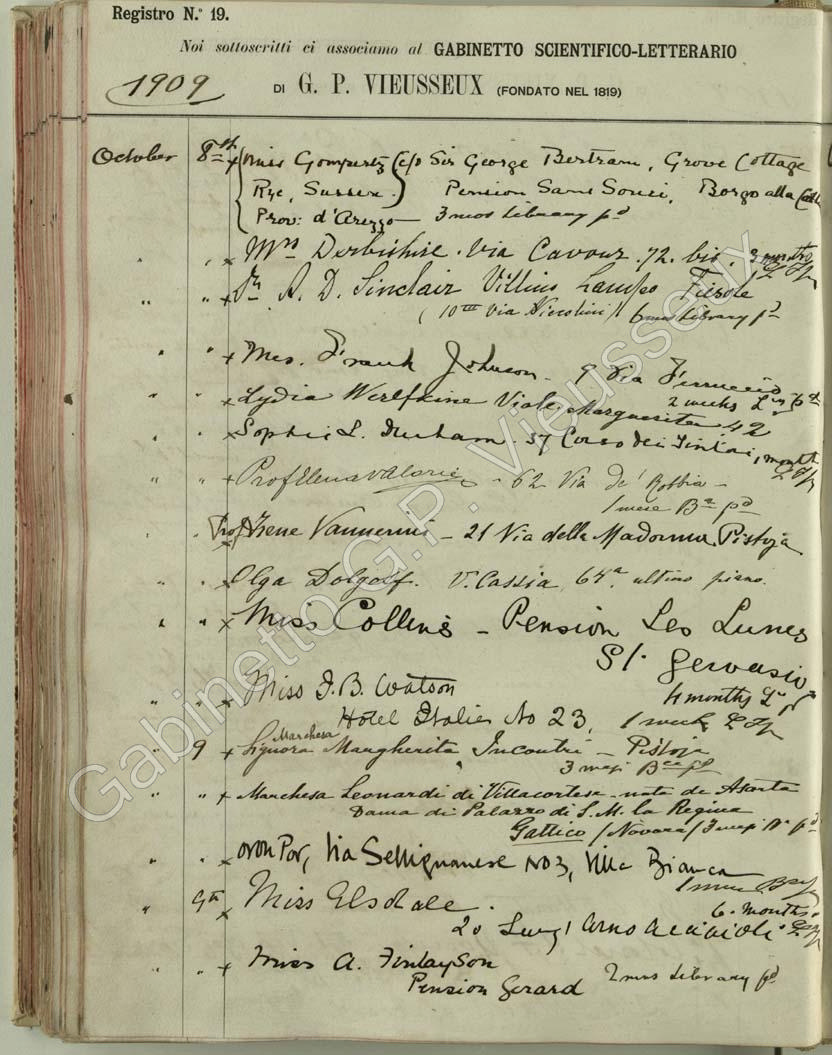 Registro N.° 19.
Noi sottoscritti ci associamo al GABINETTO SCIENTIFICO-LETTERARIO
1909 DI G. P. VIEUSSEUX (FONDATO NEL 1819)
October 8th x Miss Gompertz (c/o Sir George Bertram, Grove Cottage
Rye, Sussex.) Pension Sans Souci, Borgo alla
Prov: d'Arezzo 3 mos Library pd
" " x Mrs Derbishire. Via Cavour. 72. bis. 3 months
" " x A. D. Sinclair Villino Fiesole
(10 Via Niccolini) 6 mos Library pd
" " x Mrs. Frank Johnson. 9 Via Ferruccio
2 weeks pd
" " x Lydia Viale Margherita 42
" " x Sophie L. Durham. 37 Corso dei Tintori, 1 month
" " x Prof Elena Valerie - 62 Via de' Robbia -
1 mese pd
Irene Vannerini - 21 Via della Madonna Pistoja
" " x Olga Dolgoff. V. Cassia, 64a. ultimo piano.
" " x Miss Collins - Pension Les Lunes
St. Gervasio
4 months
" " x Miss F. B. Watson
Hotel Italie No 23, 1 week
Marchesa
" 9 x Signora Margherita Incontri - Pistoja
3 mesi pd
" " x Marchesa Leonardi di Villacortese - nata de Asarta
Dama di Palazzo di S. M. la Regina
Gattico (Novara) 3 mesi pd
" " x Via Settignanese No 3, Villa Bianca
1 mese
" 9th x Miss Elsdale.
6. months.
20 Lung' Arno Acciaioli
" " x Miss A. Finlayson
Pension Gerard 2 mos Library pd
Gabinetto G.P. Vieusseux